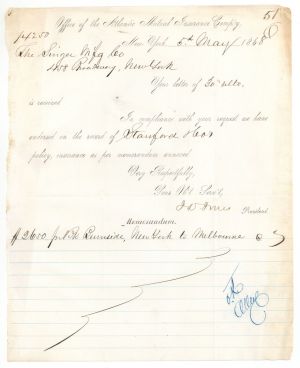 51
Office of the Atlantic Mutual Insurance Company,
New York, 5th May 1868
The Singer Mfg Co
458 Broadway, New York
Your letter of 30 ulto.
is received
In compliance with your request we have
endorsed on the record of Stanford & Cos
policy, insurance as per memorandum annexed
Very Respectfully,
Your Obt. Servt,
President
Memorandum.
$2600 pr Bk Burnside, New York to Melbourne